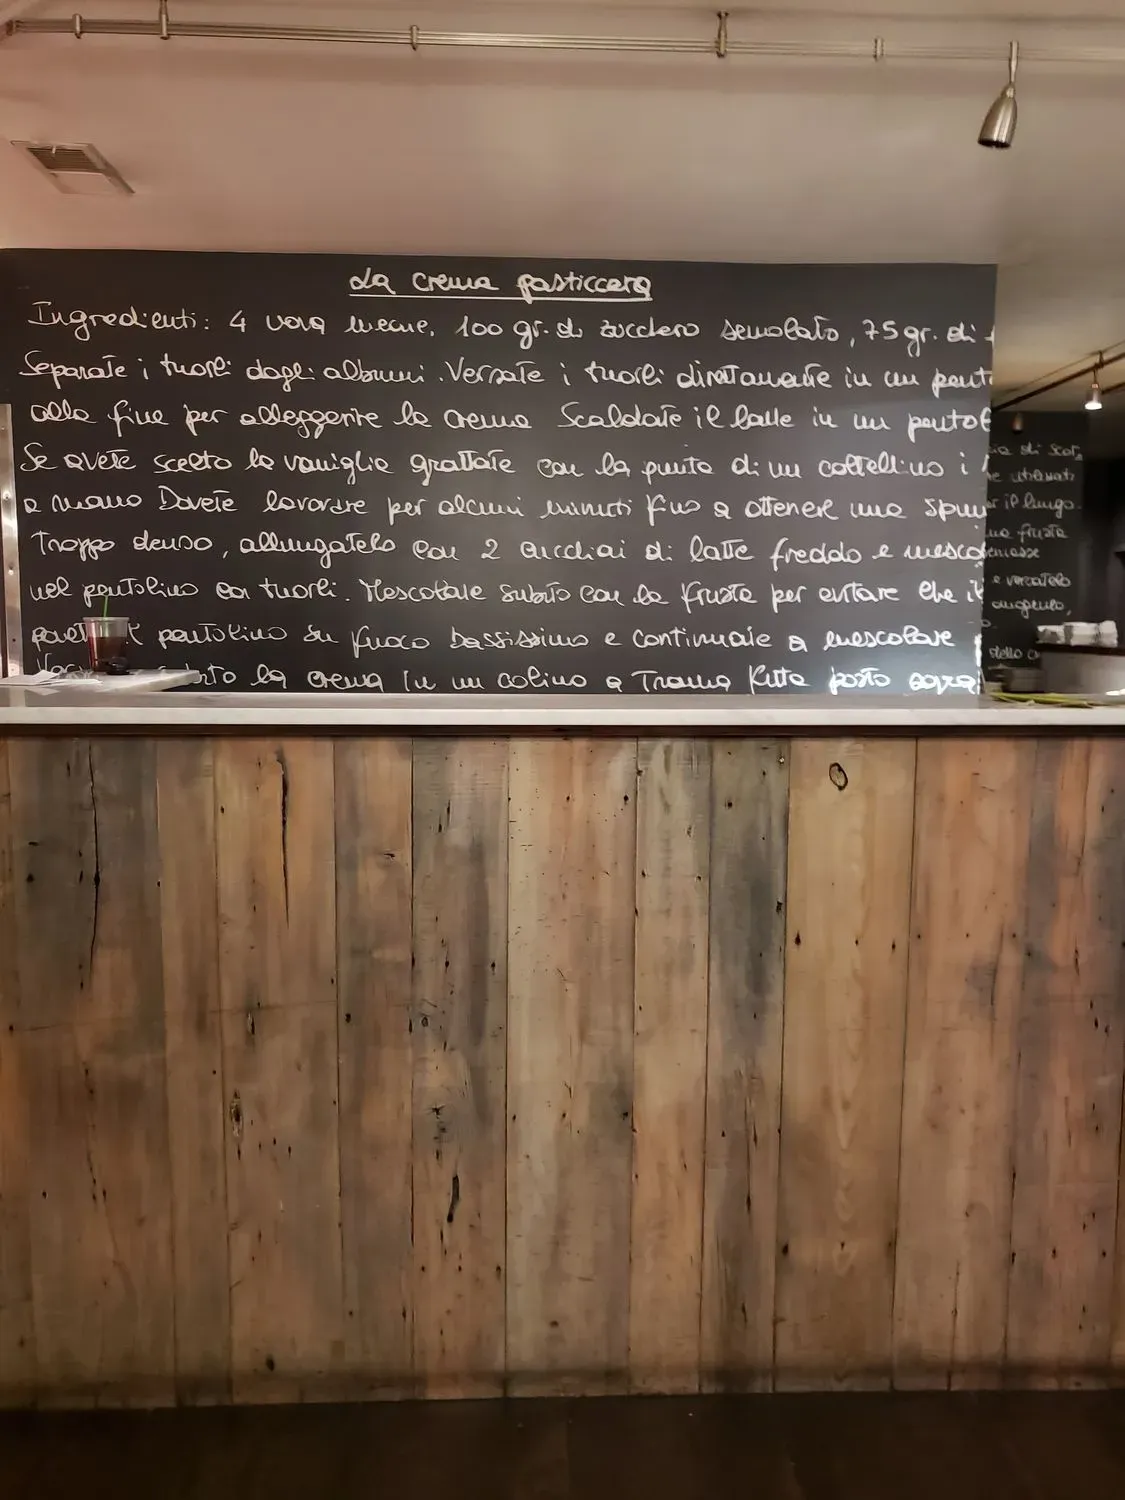 La crema pasticcera
Ingredienti: 4 uova intere, 100 gr. di zucchero semolato, 75 gr. di
Separate i tuorli dagli albumi. Versate i tuorli direttamente in un pent
alla fine per alleggerire la crema Scaldate il latte in un pentol
Se avete scelto la vaniglia grattate con la punta di un coltellino i
a mano Dovete lavorare per alcuni minuti fino a ottenere una spum
Troppo denso, allungatelo con 2 cucchiai di latte freddo e mesco
nel pentolino coi tuorli. Mescolate subito con la frusta per evitare che il
pentolino su fuoco bassissimo e continuate a mescolare
la crema in un colino a Trama fitta posto sopra
di Scor
utilizzati
il lungo.
frusta
e versatelo
dello